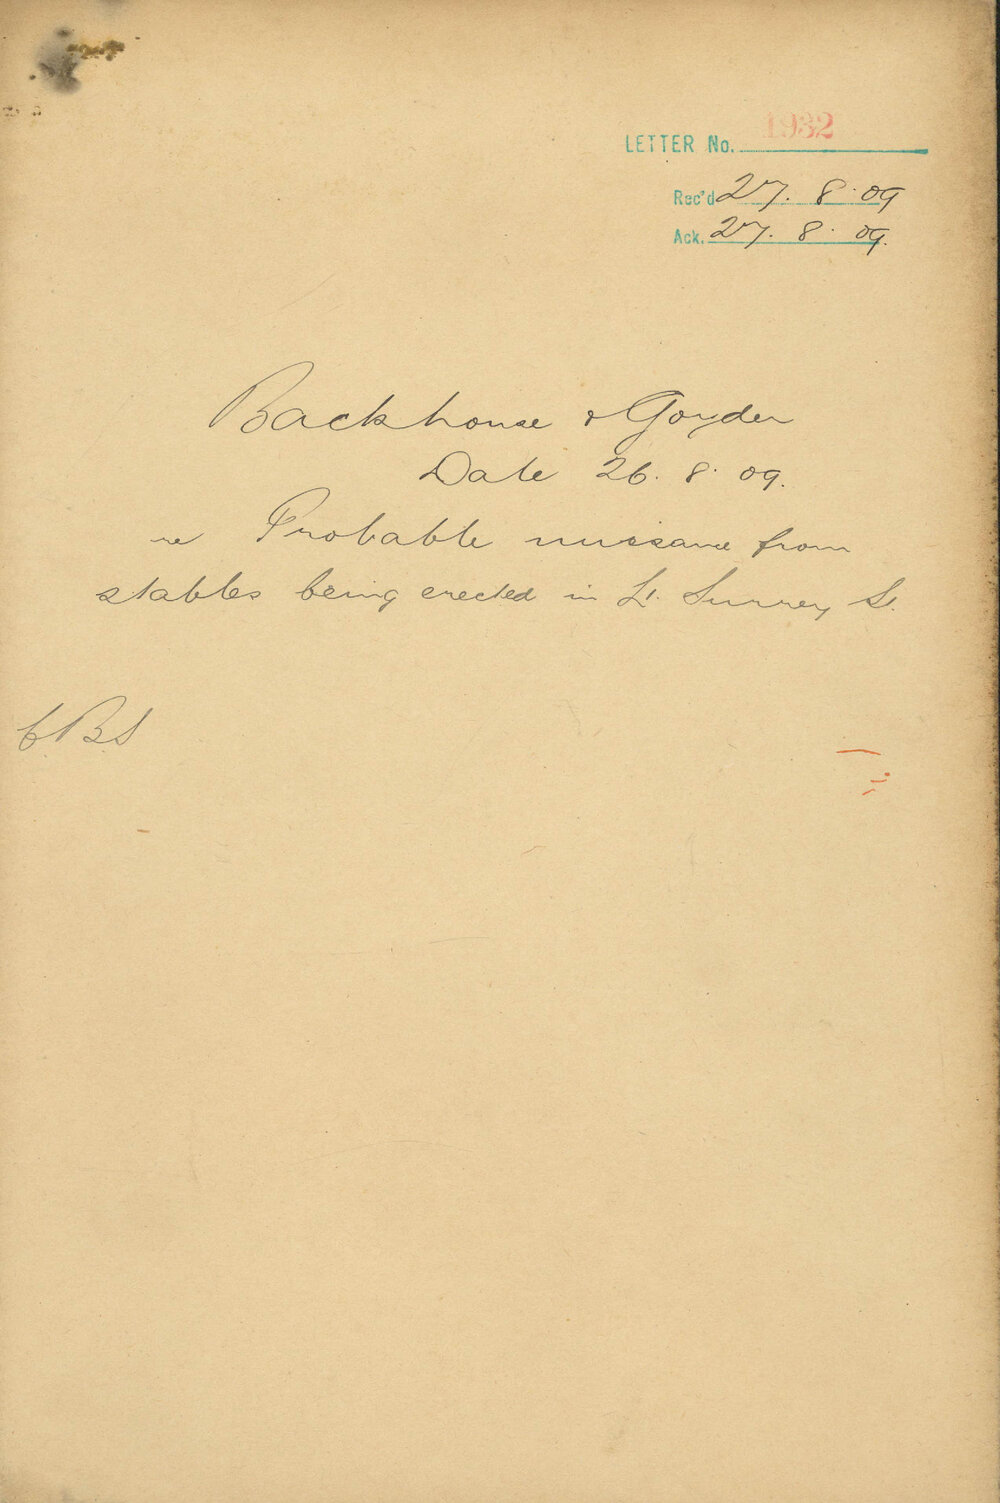 LETTER No. 1932
Rec'd 27. 8. 09
Ack. 27. 8. 09.
Backhouse & Goyder
Date 26. 8. 09.
re Probable nuisance from
stables being erected in Lt. Surrey St.
CBS